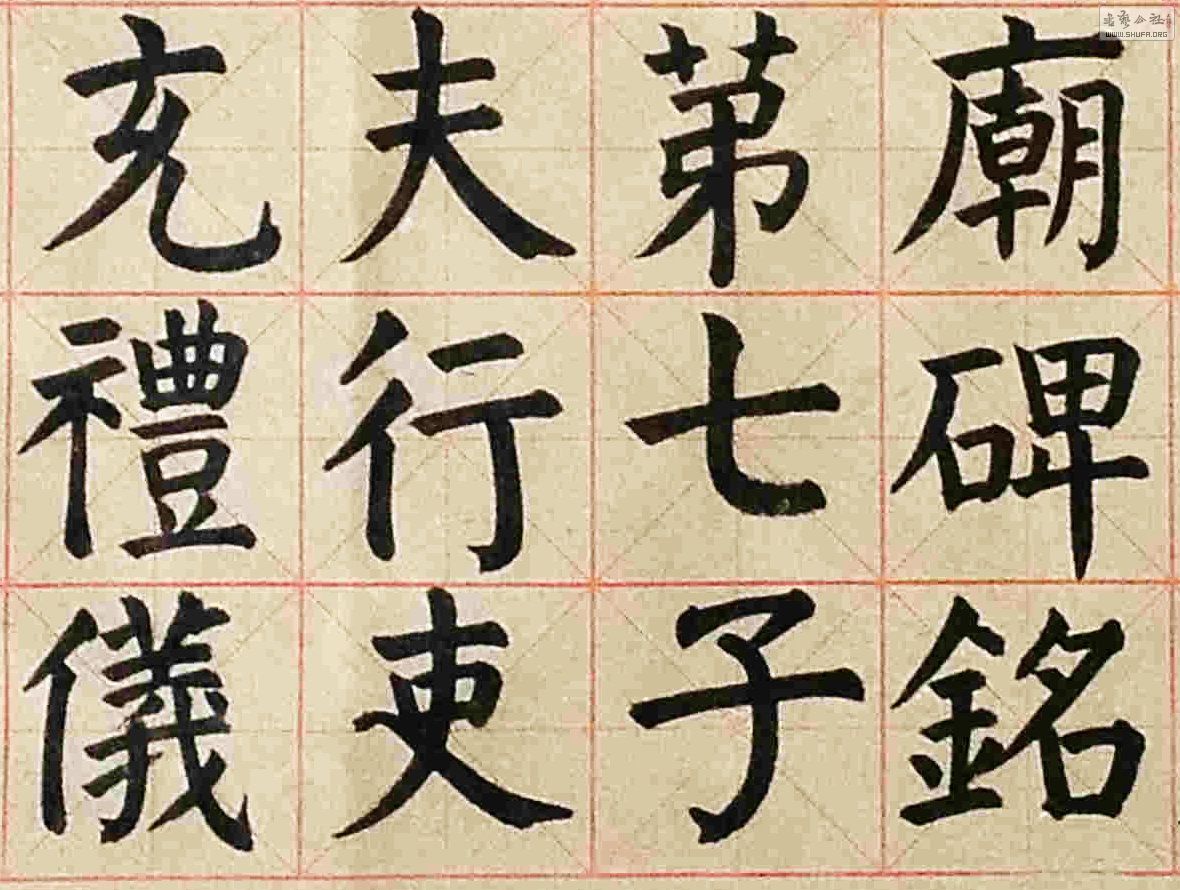 廟碑銘
第七子
夫行吏
充禮儀
書藝公社
WWW.SHUFA.ORG